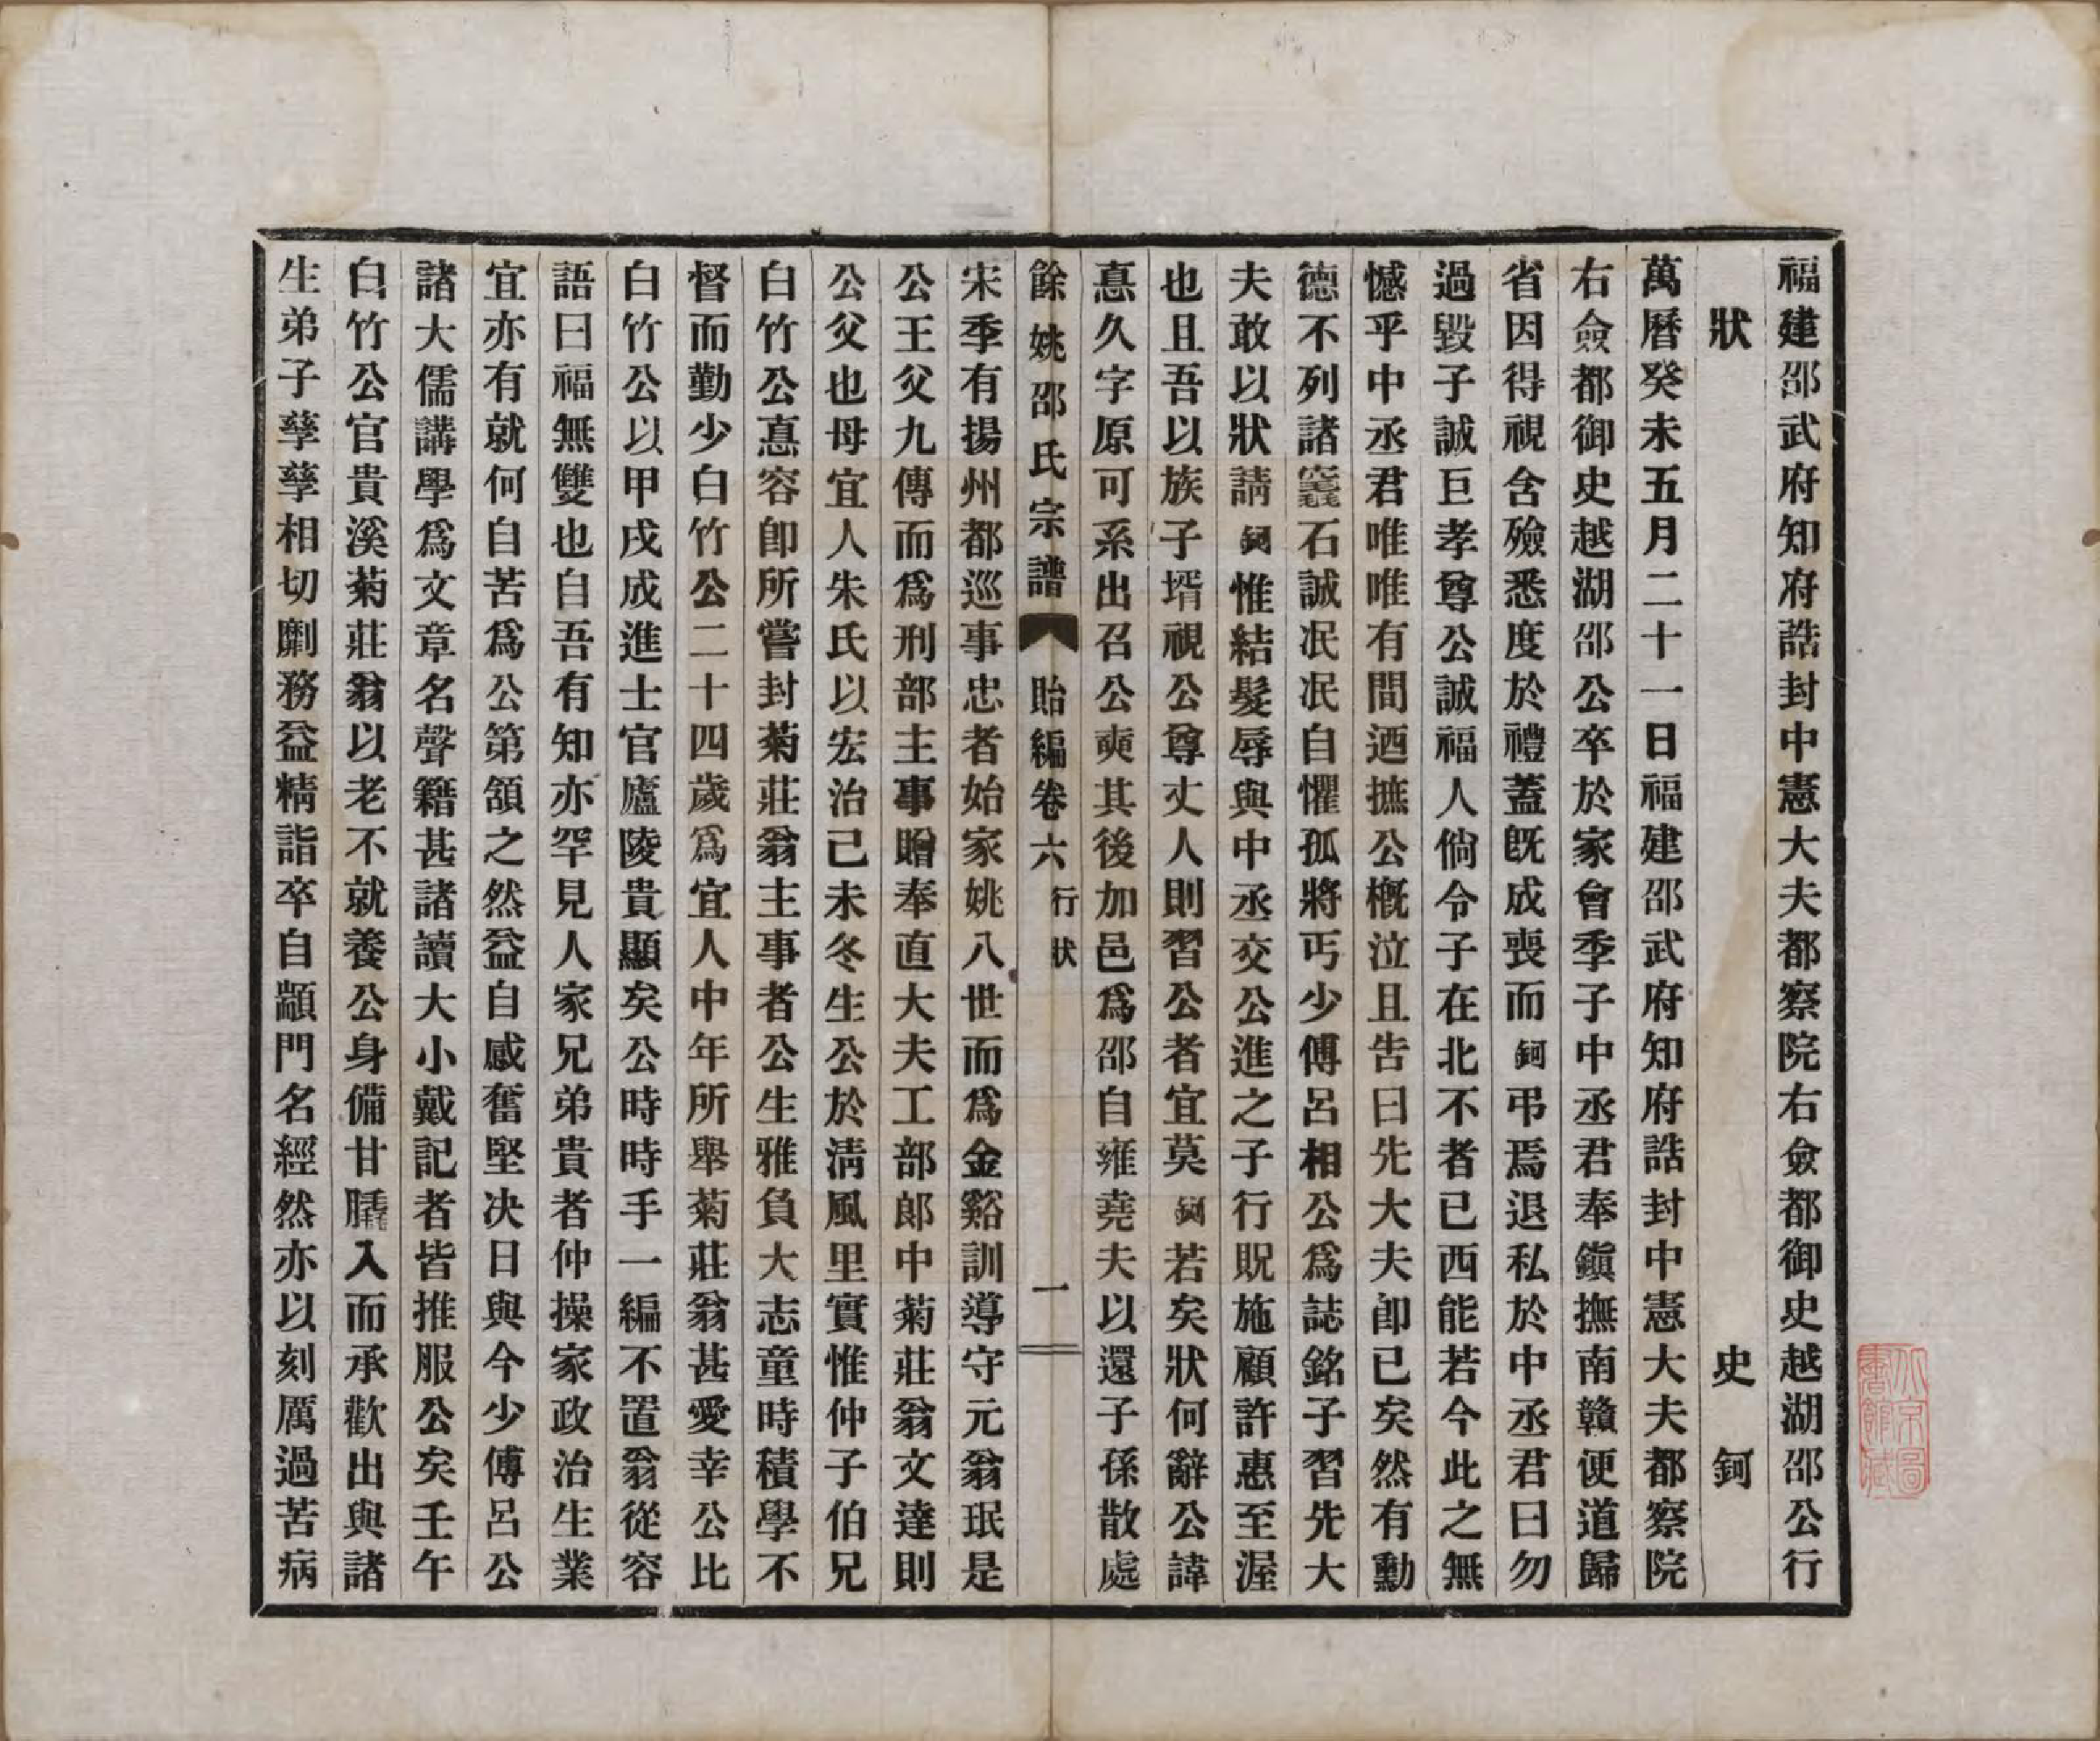 福建邵武府知府誥封中憲大夫都察院右僉都御史越湖邵公行
狀　史　鈳
萬曆癸未五月二十一日福建邵武府知府誥封中憲大夫都察院
右僉都御史越湖邵公卒於家會季子中丞君奉鎭撫南贛便道歸
省因得視含殮悉度於禮蓋既成喪而鈳弔焉退私於中丞君曰勿
過毀子誠巨孝尊公誠福人倘令子在北不者已西能若今此之無
憾乎中丞君唯唯有間迺摭公概泣且告曰先大夫卽已矣然有勳
德不列諸窀石誠泯泯自懼孤將丐少傅呂相公爲誌銘子習先大
夫敢以狀請鈳惟結髮辱與中丞交公進之子行貺施顧許惠至渥
也且吾以族子壻視公尊丈人則習公者宜莫鈳若矣狀何辭公諱
惪久字原可系出召公奭其後加邑爲邵自雍堯夫以還子孫散處
餘姚邵氏宗譜　貽編卷六　行狀　一
宋季有揚州都巡事忠者始家姚八世而爲金谿訓導守元翁珉是
公王父九傳而爲刑部主事贈奉直大夫工部郞中菊莊翁文達則
公父也母宜人朱氏以宏治己未冬生公於淸風里實惟仲子伯兄
白竹公惪容卽所嘗封菊莊翁主事者公生雅負大志童時積學不
督而勤少白竹公二十四歲爲宜人中年所舉菊莊翁甚愛幸公比
白竹公以甲戌成進士官廬陵貴顯矣公時時手一編不置翁從容
語曰福無雙也自吾有知亦罕見人家兄弟貴者仲操家政治生業
宜亦有就何自苦爲公第頷之然益自感奮堅决日與今少傅呂公
諸大儒講學爲文章名聲籍甚諸讀大小戴記者皆推服公矣壬午
白竹公官貴溪菊莊翁以老不就養公身備甘膬入而承歡出與諸
生弟子孳孳相切劘務益精詣卒自顓門名經然亦以刻厲過苦病